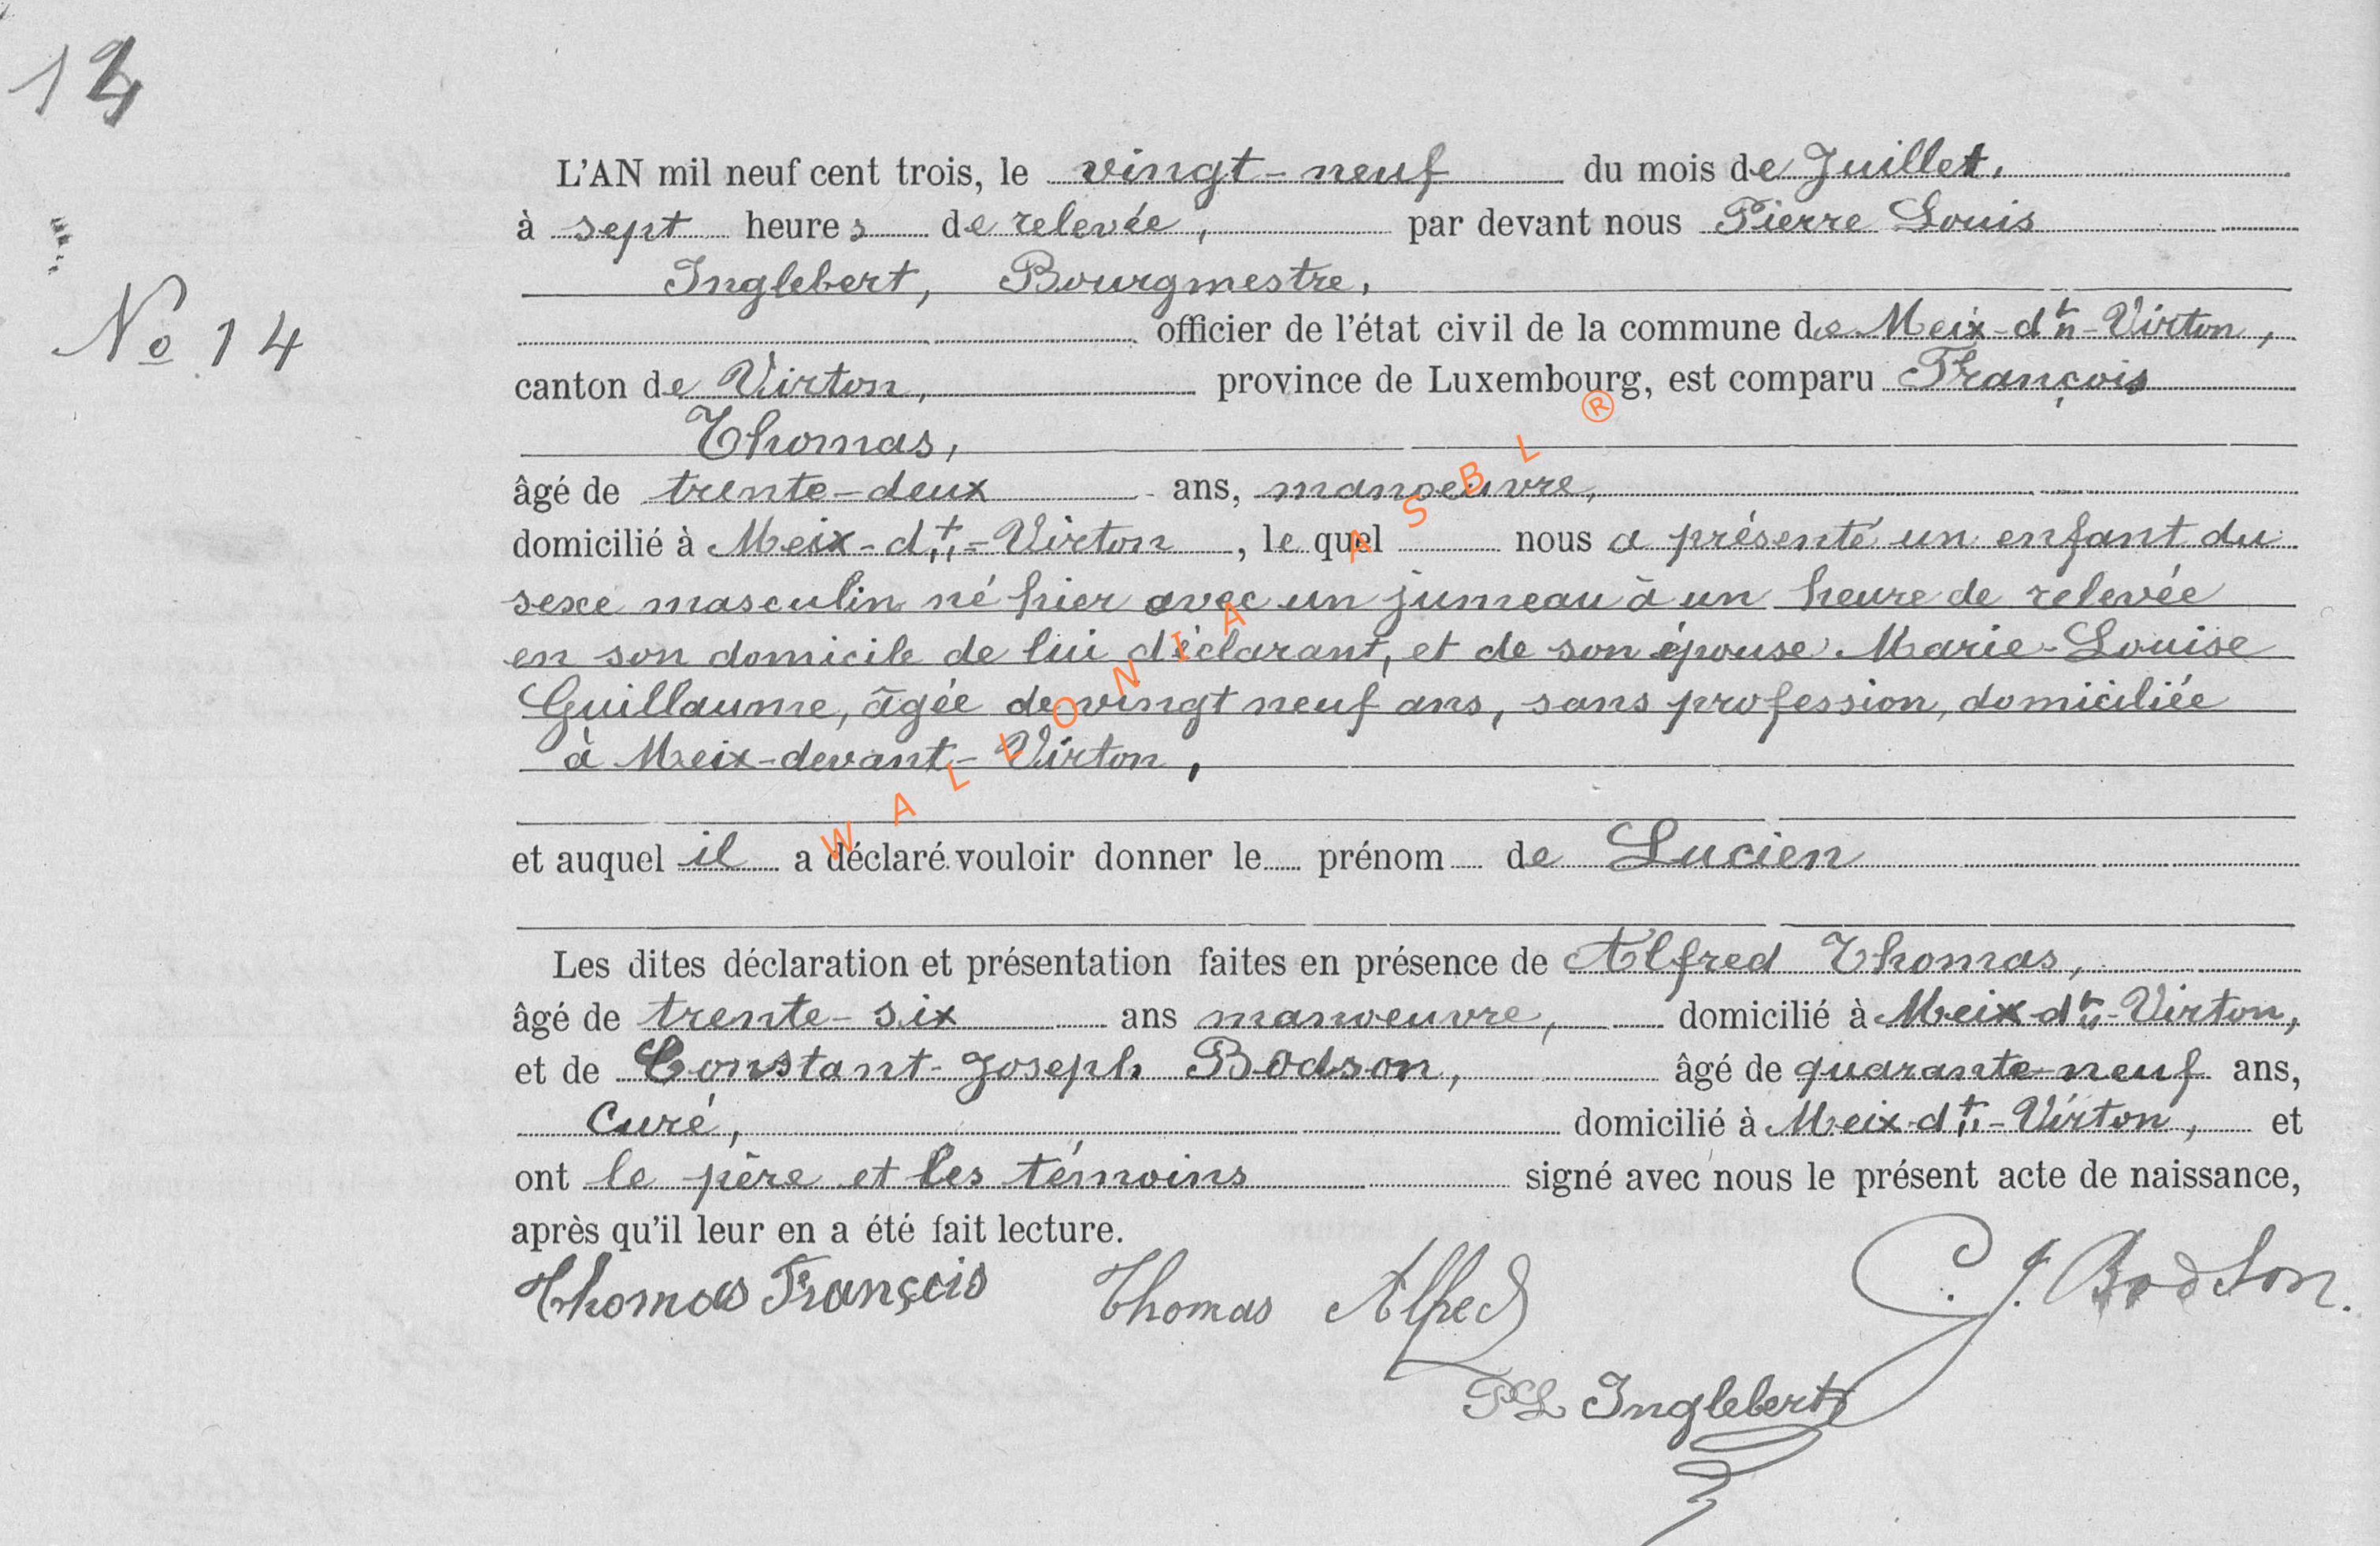 14
L'AN mil neuf cent trois, le vingt-neuf du mois de Juillet.
à sept heures de relevée, par devant nous Pierre Louis
Inglebert, Bourgmestre,
No 14
officier de l'état civil de la commune de Meix-dt-Virton,
canton de Virton, province de Luxembourg, est comparu François
Thomas,
âgé de trente-deux ans, manoeuvre,
domicilié à Meix-dt-Virton, lequel nous a présenté un enfant du
sexe masculin né hier avec un jumeau à un heure de relevée
en son domicile de lui déclarant, et de son épouse Marie-Louise
Guillaume, âgée de vingt neuf ans, sans profession, domiciliée
à Meix-devant-Virton,
et auquel il a déclaré vouloir donner le prénom de Lucien
Les dites déclaration et présentation faites en présence de Alfred Thomas,
âgé de trente-six ans manoeuvre, domicilié à Meix-dt-Virton,
et de Constant-Joseph Bodson, âgé de quarante-neuf ans,
Curé, domicilié à Meix-dt-Virton, et
ont le père et les témoins signé avec nous le présent acte de naissance,
après qu'il leur en a été fait lecture.
Thomas François Thomas Alfred C. J. Bodson.
PL Inglebert
WALLONIA ASBL ®